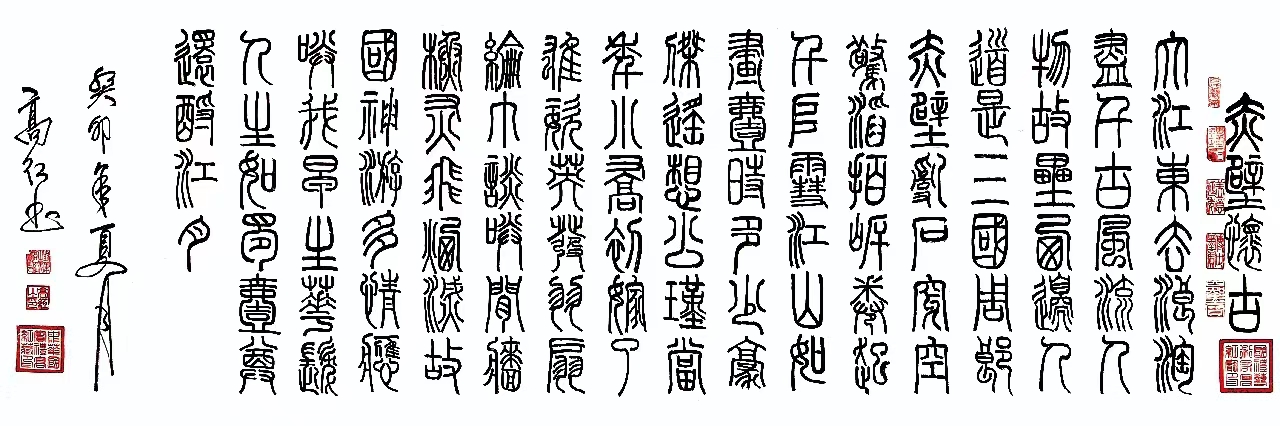 赤壁懷古
大江東去浪淘
盡千古風流人
物故壘西邊人
道是三國周郎
赤壁亂石穿空
驚濤拍岸卷起
千堆雪江山如
畫壹時多少豪
傑遙想公瑾當
年小喬初嫁了
雄姿英發羽扇
綸巾談笑間檣
櫓灰飛煙滅故
國神游多情應
笑我早生華髮
人生如夢壹尊
還酹江月
癸卯年夏月
高红书